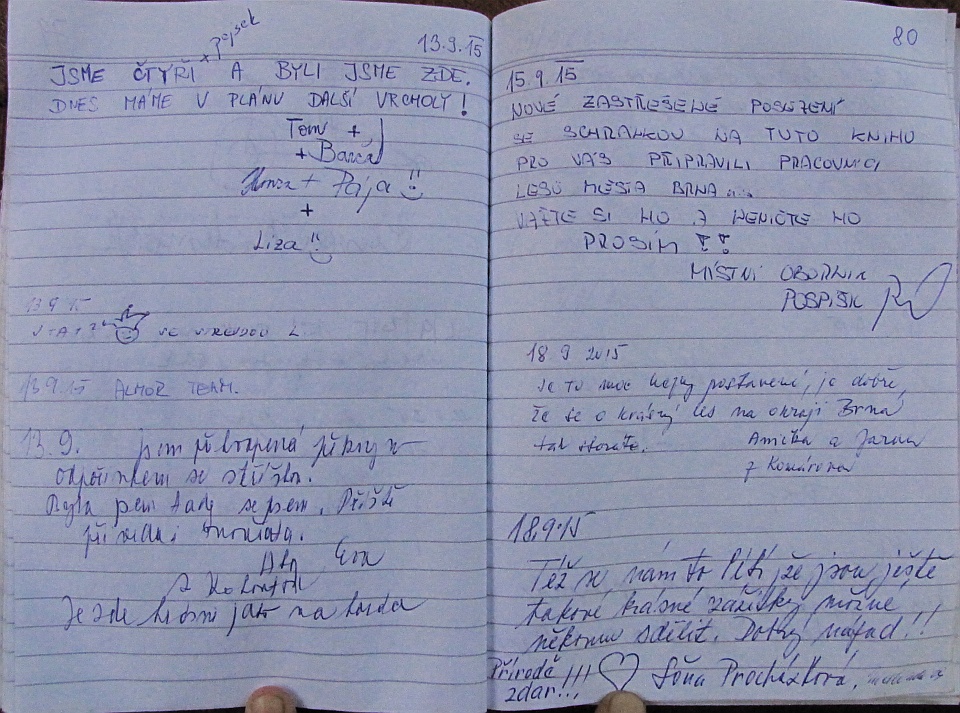 13.9.15
+ pejsek
JSME ČTYŘI A BYLI JSME ZDE.
DNES MÁME V PLÁNU DALŠÍ VRCHOLY!
Tom +
+ Bára
Honza + Pája
+
Liza
13 9 15
SE L.
13.9.15 ALMOR TEAM.
13.9. jsem překvapená pěkným
odpočinkem se stříškou.
Byla jsem tady se psem. Příště
i
Eva
z
Je zde krásně jako na
80
15.9.15
NOVÉ ZASTŘEŠENÉ POSEZENÍ
SE SCHRÁNKOU NA TUTO KNIHU
PRO VÁS PŘIPRAVILI PRACOVNÍCI
LESŮ MĚSTA BRNA...
VAŽTE SI HO A NENIČTE HO
PROSÍM !!
MÍSTNÍ
POSPÍŠIL
18 9 2015
Je to moc hezky postavení, je dobře,
že se o krásný les na okraji Brna
tak staráte. a
z Komárova
18.9.15
Též se nám to líbí že jsou ještě
takové krásné zážitky možné
někomu sdělit. Dobrý nápad!!
Přírodě
zdar!!! Soňa Procházková,